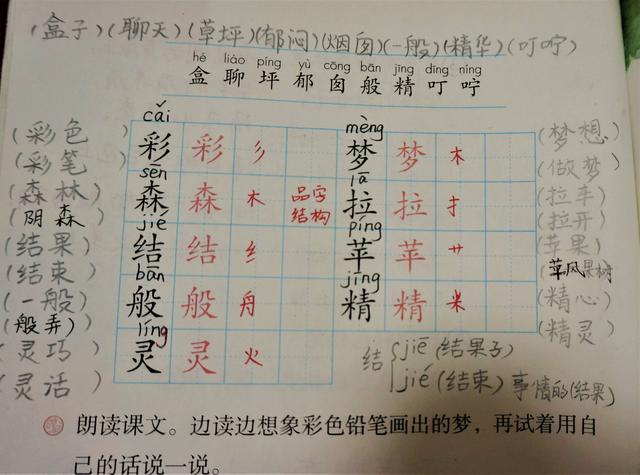 (盒子)(聊天)(草坪)(郁闷)(烟囱)(一般)(精华)(叮咛)
hé liáo píng yù cōng bān jīng dīng níng
盒 聊 坪 郁 囱 般 精 叮 咛
cǎi mèng
(彩色) 彩 彩 彡 梦 梦 木 (梦想)
(彩笔) (做梦)
sēn lā
(森林) 森 森 木 品字结构 拉 拉 扌 (拉车)
(阴森) (拉开)
jié píng
(结果) 结 结 纟 苹 苹 艹 (苹果)
(结束) (苹果树)
bān jīng
(一般) 般 般 舟 精 精 米 (精心)
(般弄) (精灵)
líng
(灵巧) 灵 灵 火
(灵活)
结 jiē (结果子)
jié (结束) 事情的(结果)
朗读课文。边读边想象彩色铅笔画出的梦,再试着用自
己的话说一说。